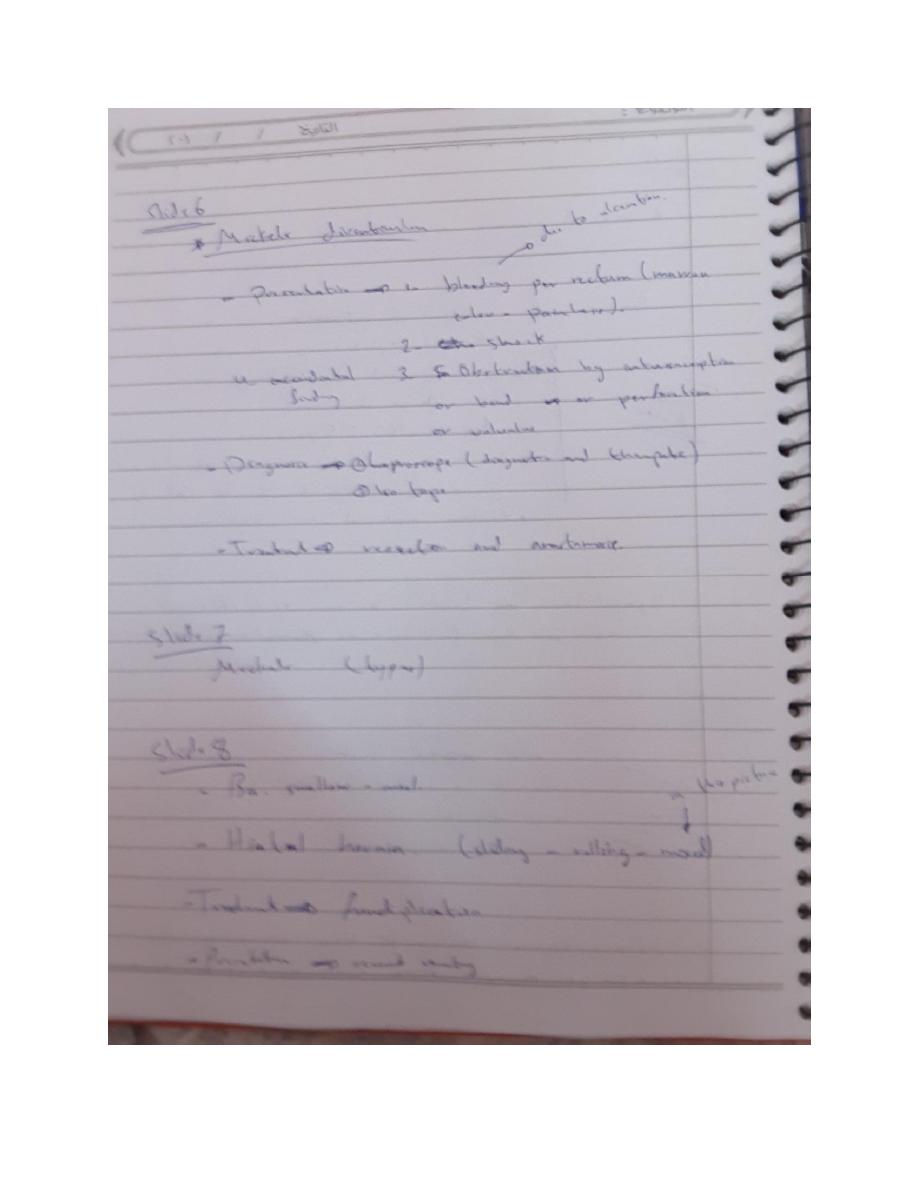 التاريخ / / ٢٠
Slide 6
* Meckels diverticulum
due to ulceration.
- Presentation → 1- bleeding per rectum (maroon
colour - painless).
2- shock
4- accidental 3 Obstruction by intussusception
finding or band or perforation
or volvulus
- Diagnosis → ① Laproscope (diagnostic and therapeutic)
② Iso tope
- Treatment → resection and anastamosis.
Slide 7
Meckels (types)
Slide 8
- Ba. swallow - meal.
picture
- Hiatal hernia (sliding - rolling - mixed)
- Treatment → fundplication
- Presentation →